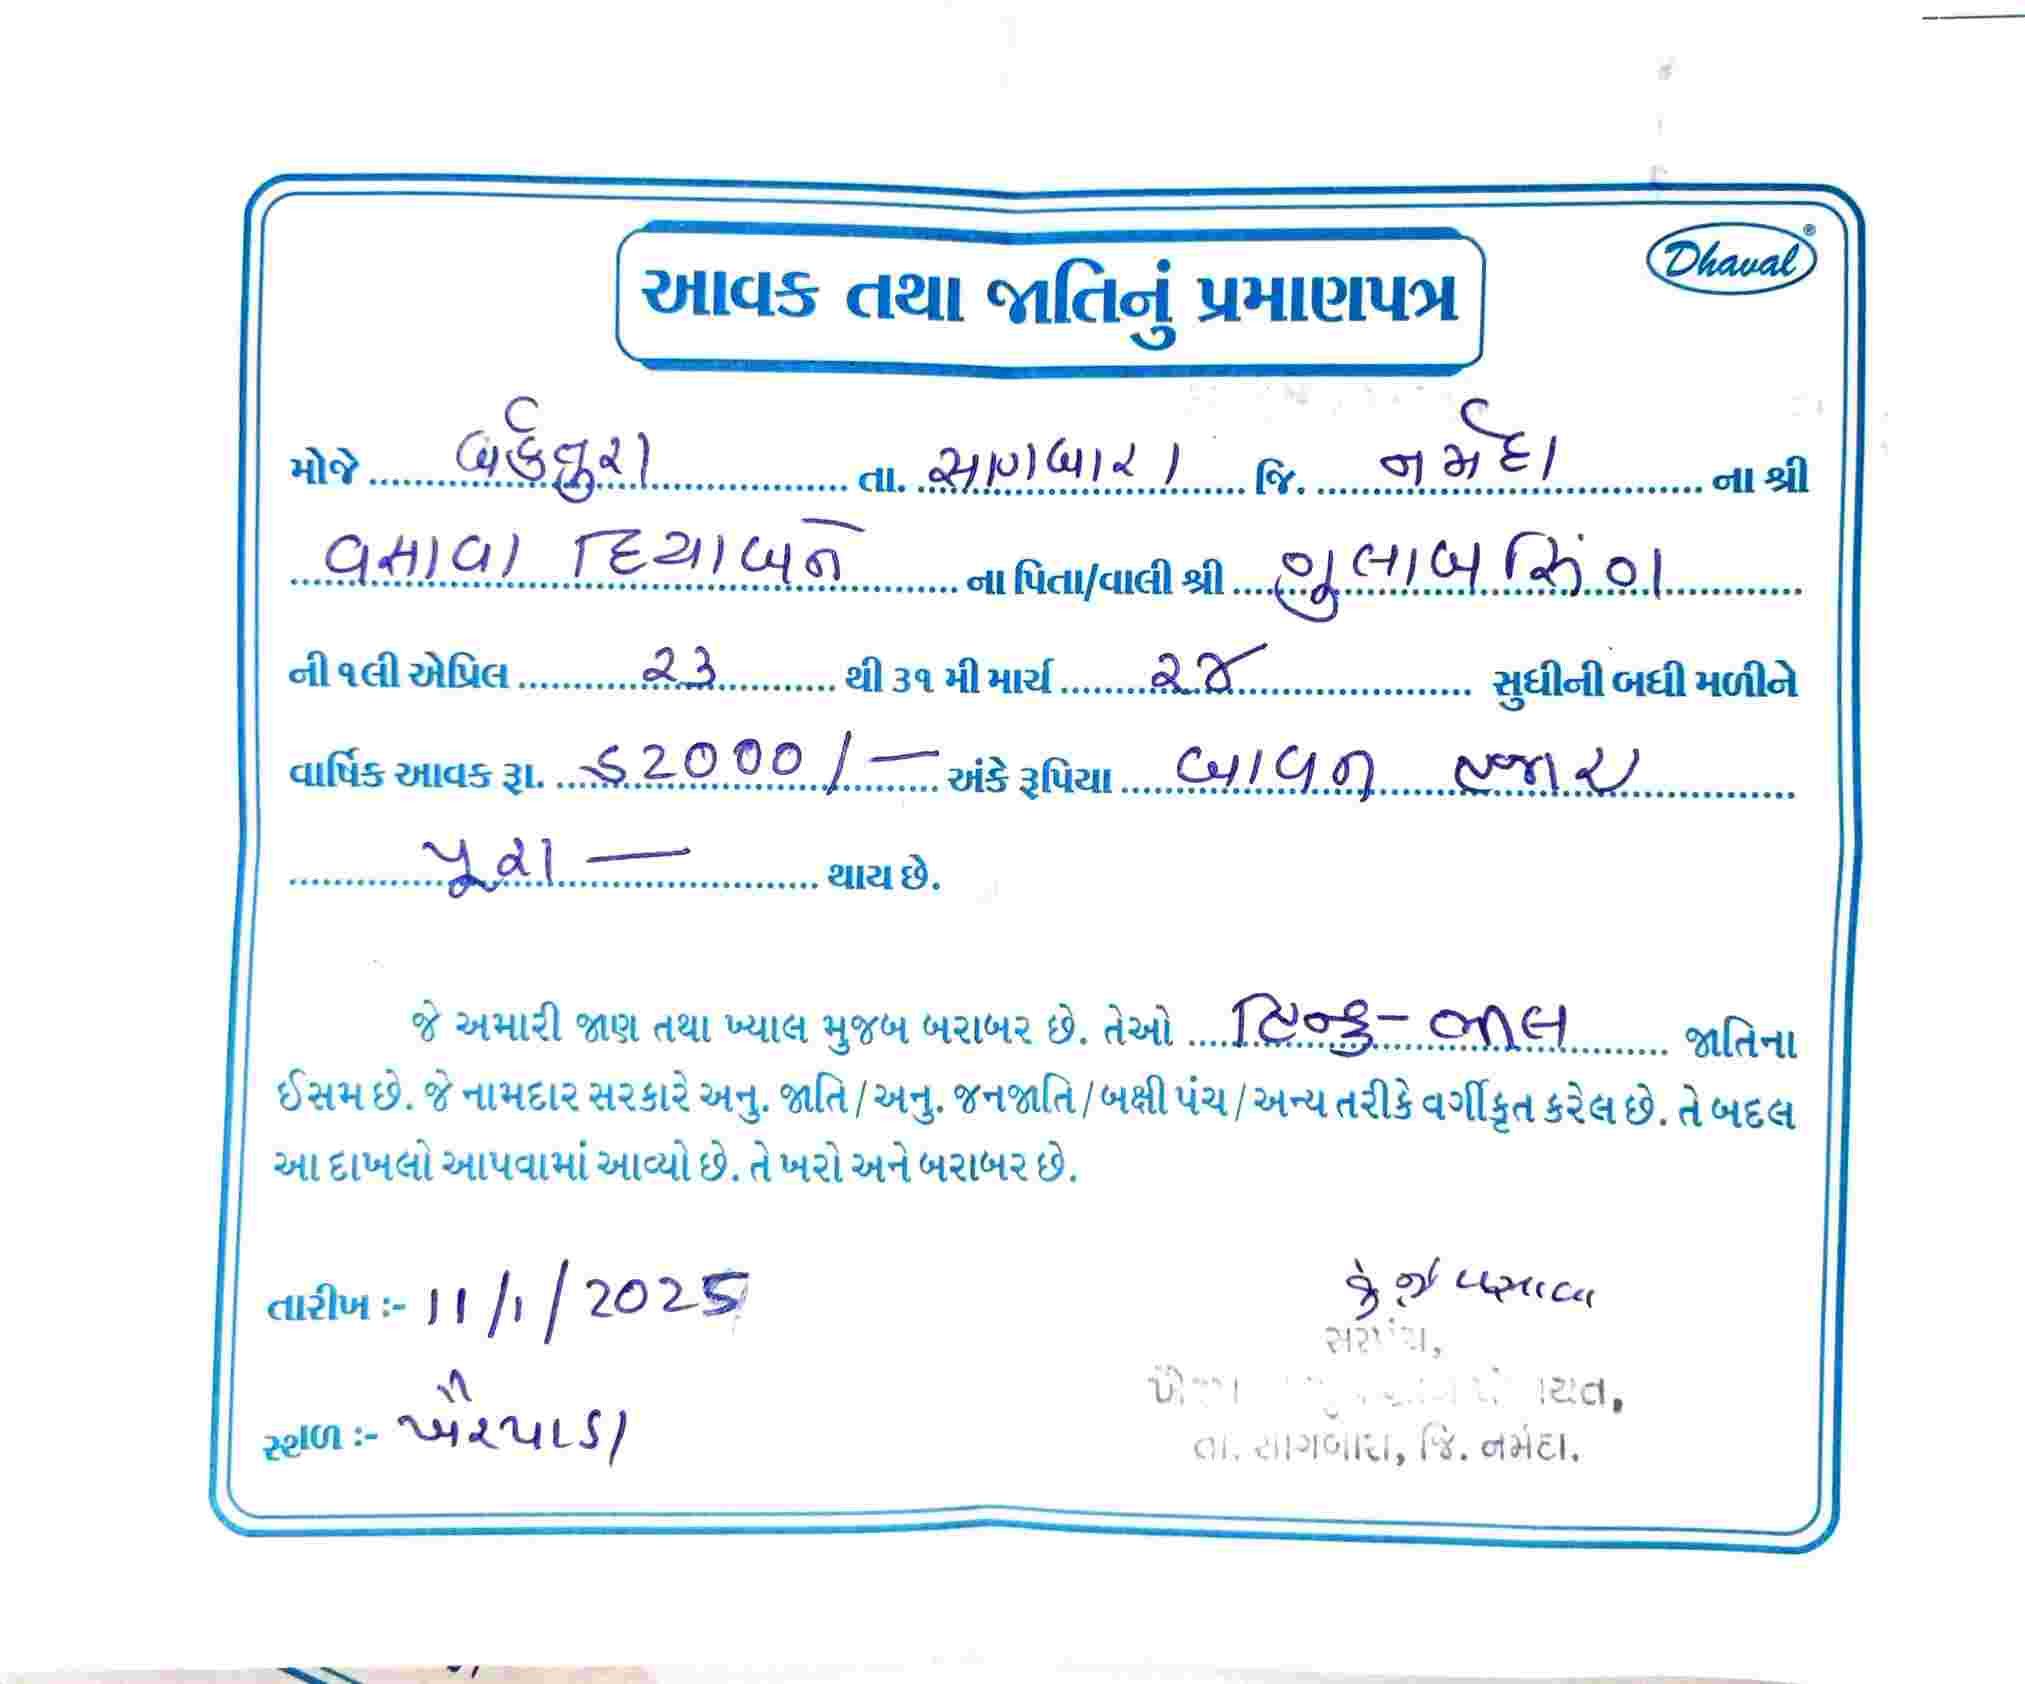 Dhaval
આવક તથા જાતિનું પ્રમાણપત્ર
મોજે બર્કતુરા તા. સાગબારા જિ. નર્મદા ના શ્રી
વસાવા દિયાબેન ના પિતા/વાલી શ્રી ગુલાબસિંગ
ની ૧લી એપ્રિલ ૨૩ થી ૩૧ મી માર્ચ ૨૪ સુધીની બધી મળીને
વાર્ષિક આવક રૂા. 52000/- અંકે રૂપિયા બાવન હજાર
પૂરા — થાય છે.
જે અમારી જાણ તથા ખ્યાલ મુજબ બરાબર છે. તેઓ હિન્દુ-ભીલ જાતિના
ઈસમ છે. જે નામદાર સરકારે અનુ. જાતિ/અનુ. જનજાતિ/બક્ષી પંચ/અન્ય તરીકે વર્ગીકૃત કરેલ છે. તે બદલ
આ દાખલો આપવામાં આવ્યો છે. તે ખરો અને બરાબર છે.
તારીખ :- 11/1/2025
વસાવા
સરપંચ,
સ્થળ :- ખૈરપાડા
તા. સાગબારા, જિ. નર્મદા.